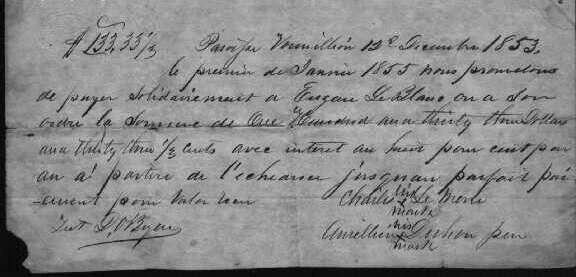 $133,33 1/3 Paroisse Vermillion 12e Decembre 1853.
le premier de Janvier 1855 nous prometons
de payer Solidairement a Eugene LeBlanc ou a Son
ordre la Somme de One Hundred and thirty three Dollars
and thirty three 1/3 cents avec interet au huit pour cent par
an a partir de l'echeance jusquau parfait pai-
-ement pour Valeur recu
Charles his Le
mark
Test D, O'Bryan Aurellien his Duhon
mark